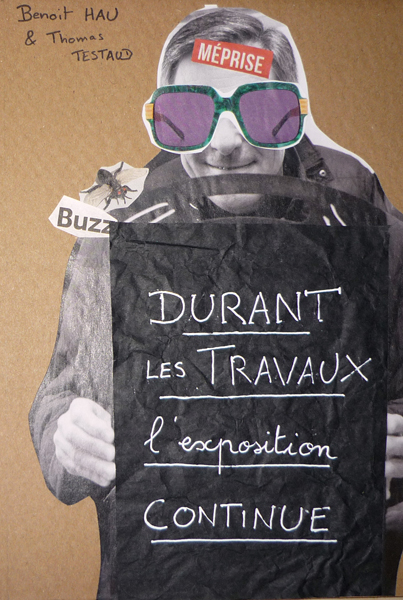 Benoit HAU
& Thomas
TESTAUD
MÉPRISE
Buzz
DURANT
LES TRAVAUX
l'exposition
CONTINUE